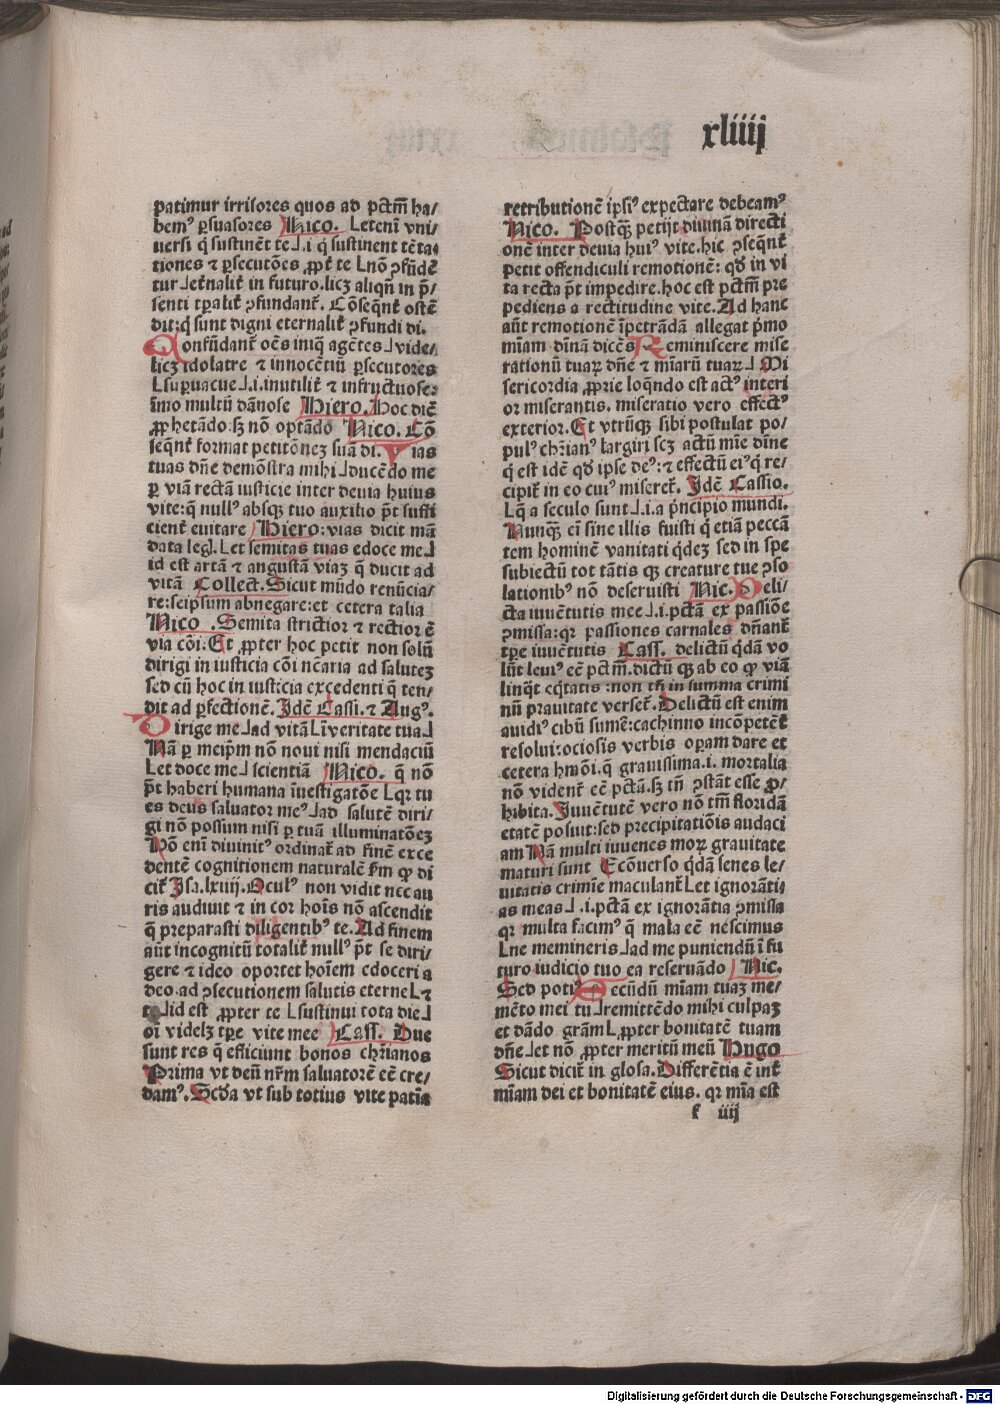 xliiij
patimur irrisores quos ad pctm̄ ha/
bemꝰ ꝑsuasores Nico. Letenī vni/
uersi q̄ sustinēt te ⅃.i q̄ sustinent tēta
tiones ⁊ ꝑsecutōes ꝓpt̄ te Lnō ꝯfūdēt
tur ⅃et̄nalit̄ in futuro.licꝫ aliqn̄ in p̄/
senti tꝑalit̄ ꝯfundant̄. Cōseqn̄t̄ ostē
dit:q̄ sunt digni eternalit̄ ꝯfundi di.
Confūdant̄ oēs iniq̄ agētes⅃vide/
licꝫ idolatre ⁊ innocētiū ꝑsecutores
Lsuꝑuacue⅃.i.inutilit̄ ⁊ infructuose:
īmo multū dānose Hiero. Hoc diē
ꝓphetādo:sꝫ nō optādo Nico. Cō
seqn̄t̄ format petitōneꝫ suā di. Vias
tuas dn̄e demōstra mihi⅃ducēdo me
ꝑ viā rectā iusticie inter deuia huius
vite:q̄ nullꝰ absqꝫ tuo auxilio pōt suffi
cient̄ euitare Hiero:vias dicit mā
data legl. Let semitas tuas edoce me⅃
id est artā ⁊ angustā viaꝫ q̄ ducit ad
vitā Collect. Sicut mūdo renūcia/
re:seipsum abnegare:et cetera talia
Nico .Semita strictior ⁊ rectior ē
via cōi:Et ꝓpter hoc petit non solū
dirigi in iusticia cōi nc̄aria ad saluteꝫ
sed cū hoc in iusticia excedenti q̄ ten/
dit ad ꝑfectionē. Jdē Cassi.⁊ Augꝰ.
Dirige me⅃ad vitā Līveritate tua⅃
Nā ꝑ meip̄m nō noui nisi mendaciū
Let doce me⅃scientiā Nico. q̄ nō
pōt haberi humana īuestigatōe Lqꝛ tu
es deus saluator meꝰ⅃ad salutē diri/
gi nō possum nisi ꝑ tuā illuminatōeꝫ
Hō enī diuinitꝰ ordinat̄ ad finē exce
dentē cognitionem naturalē ſm̄ ꝙ di
cit̄ Jsa.lxiiij.Oculꝰ non vidit nec au
ris audiuit ⁊ in cor hoīs nō ascendit
q̄ preparasti diligentibꝰ te. Ad finem
aūt incognitū totalit̄ nullꝰ pōt se diri/
gere ⁊ ideo oportet hoīem edoceri a
deo.ad ꝯsecutionem salutis eterneL⁊
te⅃id est ꝓpter te Lsustinui tota die⅃
oī videlꝫ tꝑe vite mee Cass. Due
sunt res q̄ efficiunt bonos chr̄ianos
Prima vt deū nr̄m saluatorē eē cre/
damꝰ. Scd̄a vt sub totius vite patīa
retributionē ipsiꝰ expectare debeamꝰ
Nico. Postqꝫ petijt diuinā directi
onē inter deuia huiꝰ vite.hic ꝯseqn̄t̄
petit offendiculi remotionē: qd̄ in vi
ta recta pōt impedire.hoc est pctm̄ pre
pediens a rectitudine vite. Ad hanc
aūt remotionē īpetrādā allegat p̄mo
mīam dīnā dicēs Reminiscere mise
rationū tuaꝝ dn̄e ⁊ mīarū tuaꝝ⅃ Mi
sericordia ꝓprie loqn̄do est actꝰ interi
or miserantis. miseratio vero effectꝰ
exterior. Et vtrūqꝫ sibi postulat po/
pulꝰ chr̄ianꝰ largiri scꝫ actū mīe dīne
q̄ est idē qd̄ ipse deꝰ:⁊ effectū eiꝰ q̄ re/
cipit̄ in eo cuiꝰ miseret̄. Jdē Cassio.
Lq̄ a seculo sunt⅃.i.a p̄ncipio mundi.
Nunqꝫ eī sine illis fuisti q̄ etiā peccā
tem hominē vanitati q̄deꝫ sed in spe
subiectū tot tātis qꝫ creature tue ꝯso
lationibꝰ nō deseruisti Nic. Deli/
cta iuuētutis mee⅃.i.pctā ex passiōe
ꝯmissa:qꝛ passiones carnales dn̄ant̄
tꝑe iuuētutis Cass. delictū q̄dā vo
lūt leuiꝰ eē pctm̄.dictū qꝫ ab eo ꝙ viā
linq̄t eq̄tatis :non tn̄ in summa crimi
nū prauitate verset̄. Delictū est enim
auidiꝰ cibū sumē:cachinno incōpetēt̄
resolui:ociosis verbis oꝑam dare et
cetera hmōi.q̄ grauissima.i. mortalia
nō vident̄ eē pctā.sꝫ tn̄ ꝯstāt esse ꝓ/
hibita. Juuētutē vero nō tm̄ floridā
etatē posuit:sed precipitatiōis audaci
am Nā multi iuuenes moꝝ grauitate
maturi sunt Ecōuerso q̄dā senes le/
uitatis crimīe maculant̄ Let ignorātis
as meas⅃ .i.pctā ex ignorātia ꝯmissa
qꝛ multa facimꝰ q̄ mala eē nescimus
Lne memineris⅃ad me puniendū ī fu
turo iudicio tuo ea reseruādo Nic.
Sed potiꝰ Secūdū mīam tuaꝫ me/
mēto mei tu⅃remittēdo mihi culpaꝫ
et dādo grām Lꝓpter bonitatē tuam
dn̄e⅃et nō ꝓpter meritū meū Hugo
Sicut dicit̄ in glosa. Differētia ē int̄
mīam dei et bonitatē eius. qꝛ mīa est
k iiij
Digitalisierung gefördert durch die Deutsche Forschungsgemeinschaft - DFG